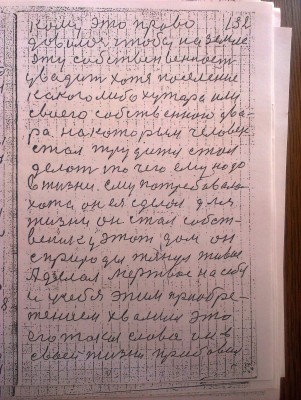 кому это право 132
довилос чтобы на земле
эту собственность
увидит хотя поселение
какого либо хутара или
своего собственного два-
ра. на котором человек
стал трудится стал
делат то чего ему надо
в жизни. ему потребовалас
хота он ея сделал для
жизни он стал собст-
венику этот дом он
с природы тянул живое
А делал мертвое на себя
и у себя этим приобре-
тением хвалился это
его такие слова он в
своей жизни прибовил